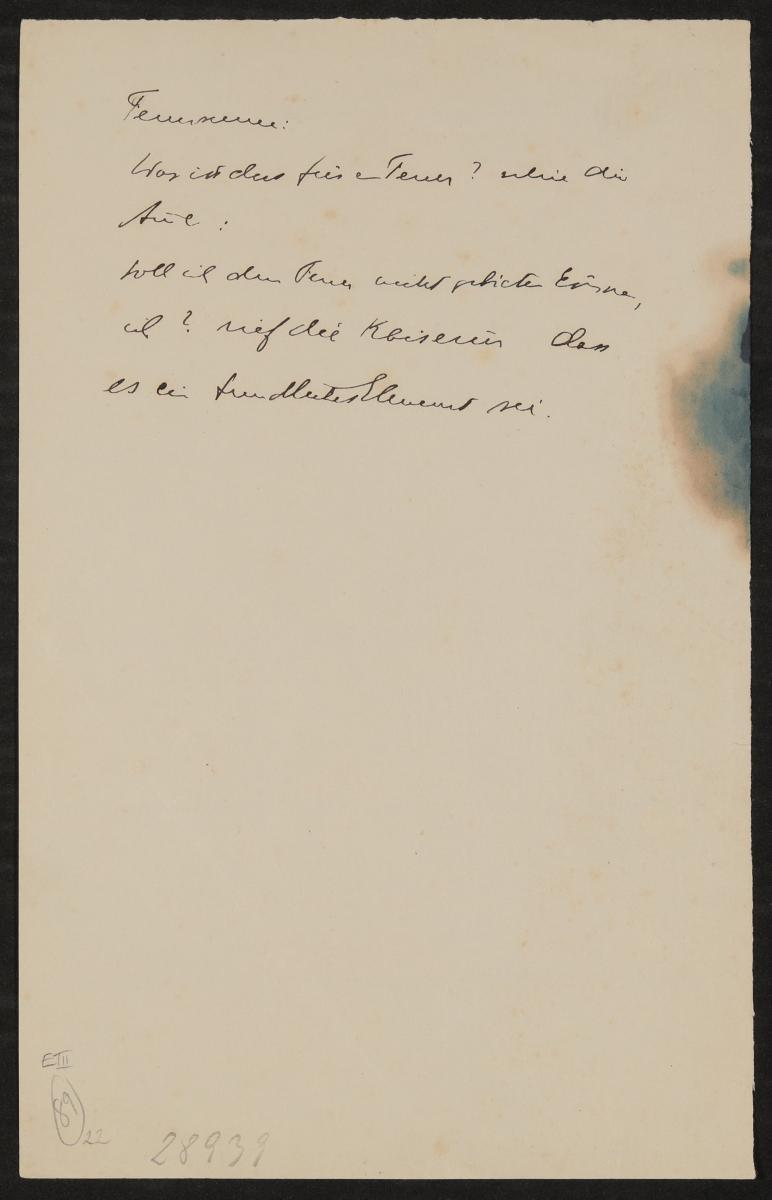 Feuerscene:
Was ist das für ein Feuer? schrie die
Amme:
soll ich dem Feuer nicht gebieten können,
ich? rief die Kaiserin dass
es ein feindliches Element sei.
E III
89
22
28939